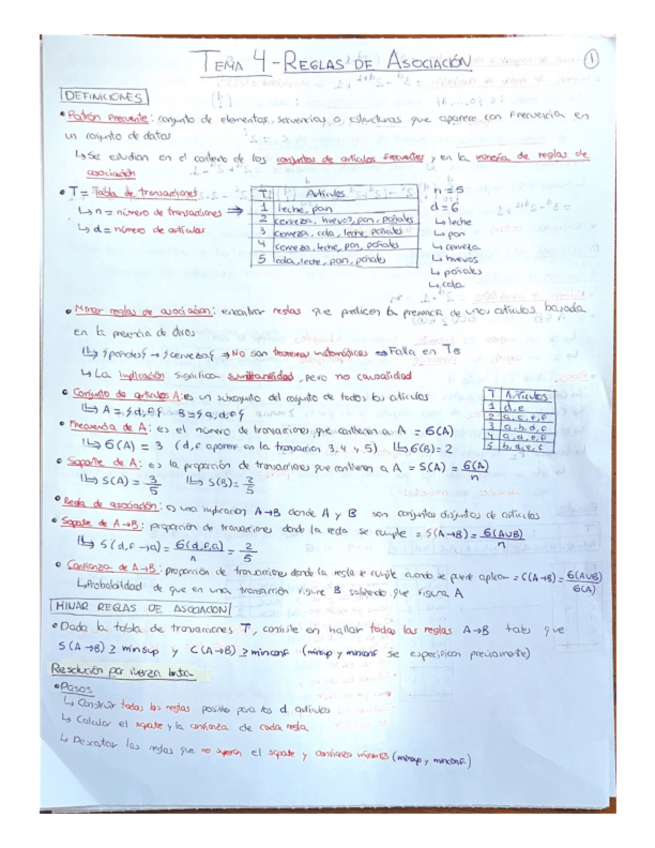 TEMA 4 - REGLAS DE ASOCIACIÓN
1
DEFINICIONES
• Patrón frecuente: conjunto de elementos, secuencias o estructuras que aparece con frecuencia en
un conjunto de datos
↳ Se estudian en el contexto de los conjuntos de artículos frecuentes y en la minería de reglas de
asociación
• T = Tabla de transacciones
↳ n = número de transacciones ⇒
↳ d = número de artículos
T Artículos
1 leche, pan
2 cerveza, huevos, pan, pañales
3 cerveza, cola, leche, pañales
4 cerveza, leche, pan, pañales
5 cola, leche, pan, pañales
n = 5
d = 6
↳ leche
↳ pan
↳ cerveza
↳ huevos
↳ pañales
↳ cola
• Minar reglas de asociación: encontrar reglas que predicen la presencia de unos artículos basada
en la presencia de otros
↳ {pañales} → {cerveza} ⇒ No son teoremas matemáticos ⇒ Falla en T5
↳ La implicación significa simultaneidad, pero no causalidad
• Conjunto de artículos A: es un subconjunto del conjunto de todos los artículos
↳ A = {d, e} B = {a, d, e}
• Frecuencia de A: es el número de transacciones que contienen a A = σ(A)
↳ σ(A) = 3 (d, e aparece en la transacción 3, 4 y 5) ↳ σ(B) = 2
T Artículos
1 d, e
2 a, c, e, f
3 a, b, d, e
4 a, d, e, f
5 b, d, e, f
• Soporte de A: es la proporción de transacciones que contienen a A = S(A) = σ(A)/n
↳ S(A) = 3/5 ↳ S(B) = 2/5
• Regla de asociación: es una implicación A→B donde A y B son conjuntos disjuntos de artículos
• Soporte de A→B: proporción de transacciones donde la regla se cumple = S(A→B) = σ(A∪B)/n
↳ S(d, e → a) = σ(d, e, a)/n = 2/5
• Confianza de A→B: proporción de transacciones donde la regla se cumple cuando se puede aplicar = C(A→B) = σ(A∪B)/σ(A)
↳ Probabilidad de que en una transacción figure B sabiendo que figura A
MINAR REGLAS DE ASOCIACIÓN
• Dada la tabla de transacciones T, consiste en hallar todas las reglas A→B tales que
S(A→B) ≥ minsup y C(A→B) ≥ minconf (minsup y minconf se especifican previamente)
Resolución por fuerza bruta
• Pasos
↳ Construir todas las reglas posibles para los d artículos
↳ Calcular el soporte y la confianza de cada regla
↳ Descartar las reglas que no superan el soporte y confianza mínimos (minsup y minconf)